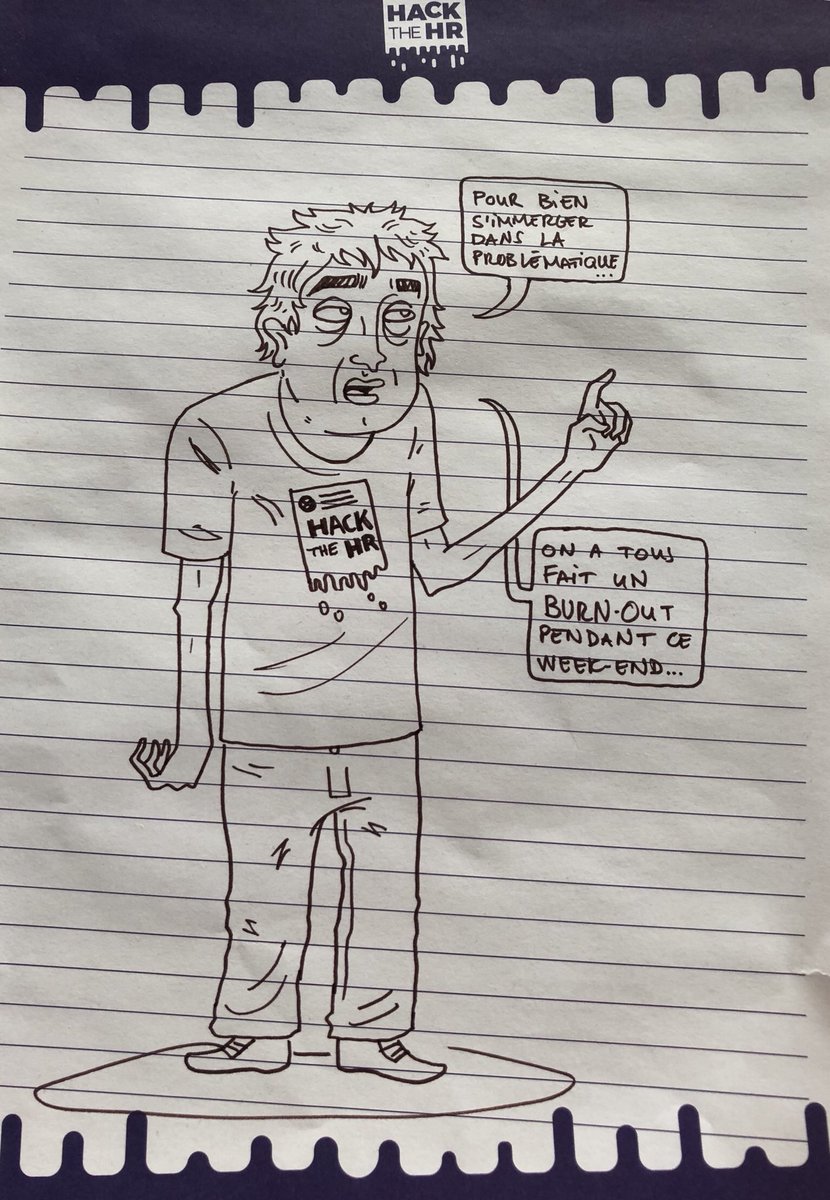 HACK
THE HR
POUR BIEN
S'IMMERGER
DANS LA
PROBLÉMATIQUE
...
HACK
THE HR
ON A TOUS
FAIT UN
BURN-OUT
PENDANT CE
WEEK-END...